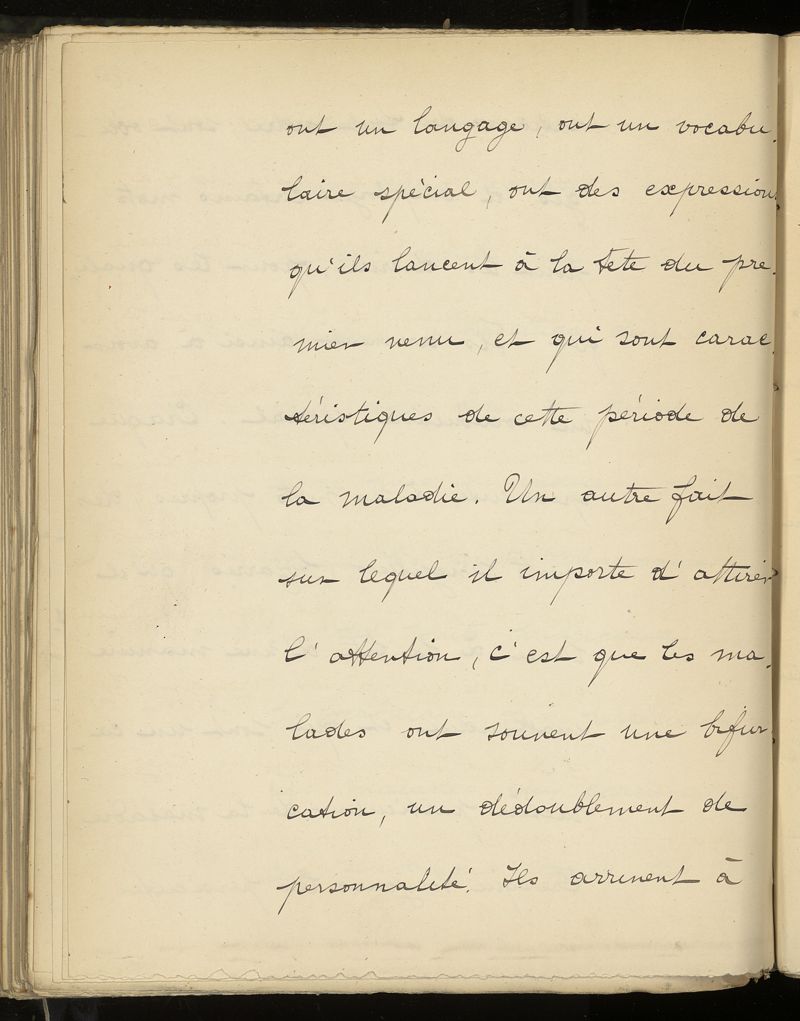 ont un langage, ont un vocabu-
laire spécial, ont des expressions
qu'ils lancent à la tête du pre-
mier venu, et qui sont carac-
téristiques de cette période de
la maladie. Un autre fait
sur lequel il importe d'attirer
l'attention, c'est que les ma-
lades ont souvent une bifur-
cation, un dédoublement de
personnalité. Ils arrivent à